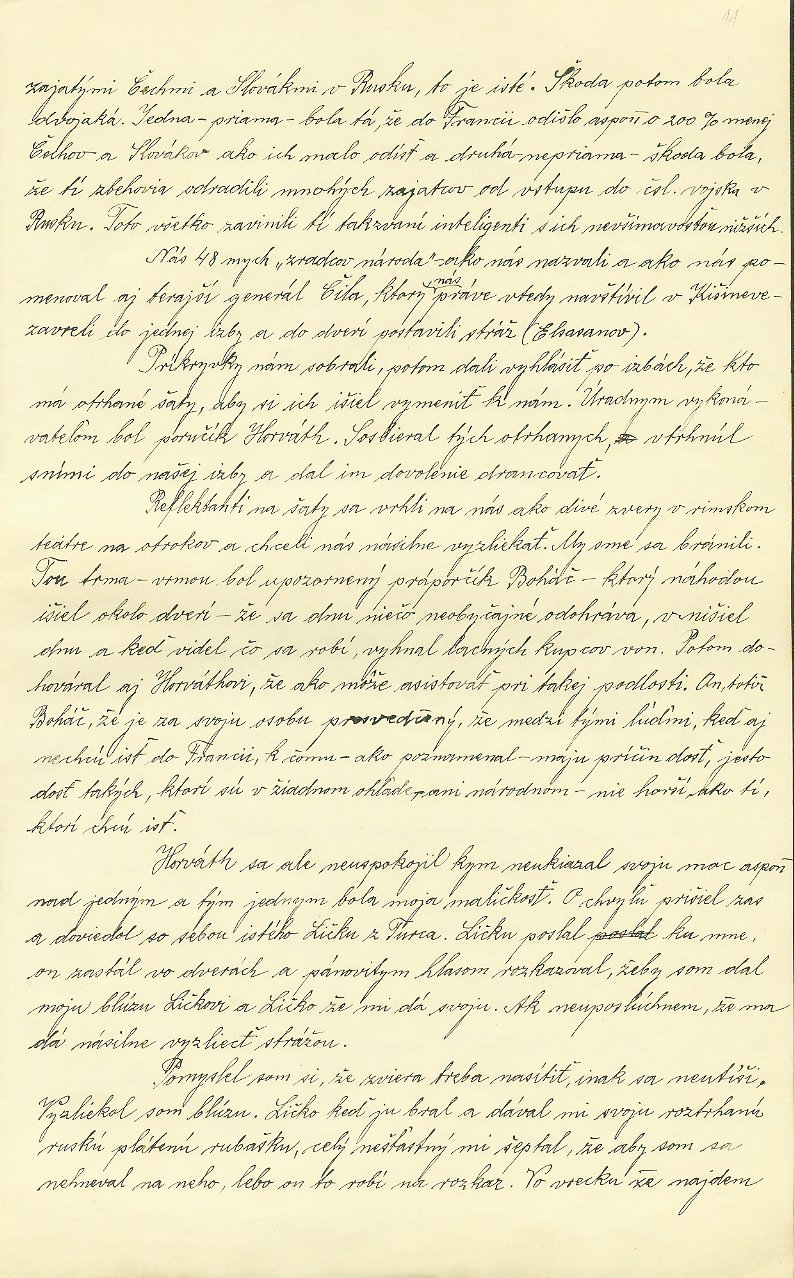 11
zajatými Čechmi a Slovákmi v Rusku, to je isté. Škoda potom bola
dvojaká. Jedna - priama - bola tá, že do Francii odišlo aspoň o 200 % menej
Čechov a Slovákov ako ich malo odísť a druhá - nepriama - škoda bola,
že tí zbehovia odradili mnohých zajatcov od vstupu do čsl. vojsku v
Rusku. Toto všetko zavinili tí takzvaní inteligenti s ich nevšímavosťou nižších.
Nás 48 mych „zradcov národa" - ako nás nazvali a ako nás po-
menoval aj terajší generál Čila, ktorý nás práve vtedy navštívil v Kišineve -
zavreli do jednej izby a do dverí postavili stráž (Elsasanov).
Prikryvky nám sobrali, potom dali vyhlásiť po izbách, že kto
má otrhané šaty, aby si ich išiel vymeniť k nám. Úradnym vykoná-
vateľom bol poručík Horváth. Sosbieral tých otrhanych, a vtrhnúl
snimi do našej izby a dal im dovolenie drancovať.
Reflektanti na šaty sa vrhli na nás ako divé zvery v rimskom
teátre na otrokov a chceli nás násilne vyzliekať. My sme sa bránili.
Tou trma-vrmou bol upozornený práporčík Boháč - ktorý náhodou
išiel okolo dverí - že sa dnu niečo neobyčajné odohráva, vnišiel
dnu a keď videl čo sa robí, vyhnal lacných kupcov von. Potom do-
hováral aj Horváthovi, že ako môže asistovať pri takej podlosti. On, totiž
Boháč, že je za svoju osobu presvedčený, že medzi tými ľuďmi, keď aj
nechcú ísť do Francii, k čomu - ako poznamenal - maju pričin dosť, jesto
dosť takých, ktorí sú v žiadnom ohľade - ani národnom - nie horší ako tí,
ktorí chcú ísť.
Horváth sa ale neuspokojil kym neukiazal svoju moc aspoň
nad jedným a tým jednym bola moja maličkosť. O chvyľu prišiel zas
a doviedol so sebou istého Ličku z Turca. Ličku poslal poslal ku mne,
on zastál vo dverách a pánovitym hlasom rozkazoval, žeby som dal
moju blúzu Ličkovi a Ličko že mi dá svoju. Ak neuposlúchnem, že ma
dá násilne vyzliecť strážou.
Pomyslel som si, že zviera treba nasítiť, inak sa neutíši.
Vyzliekol som blúzu. Ličko keď ju bral a dával mi svoju roztrhanú
ruskú plátenú rubášku, celý nešťastný mi šeptal, že aby som sa
nehneval na neho, lebo on to robí na rozkaz. Vo vrecku že najdem